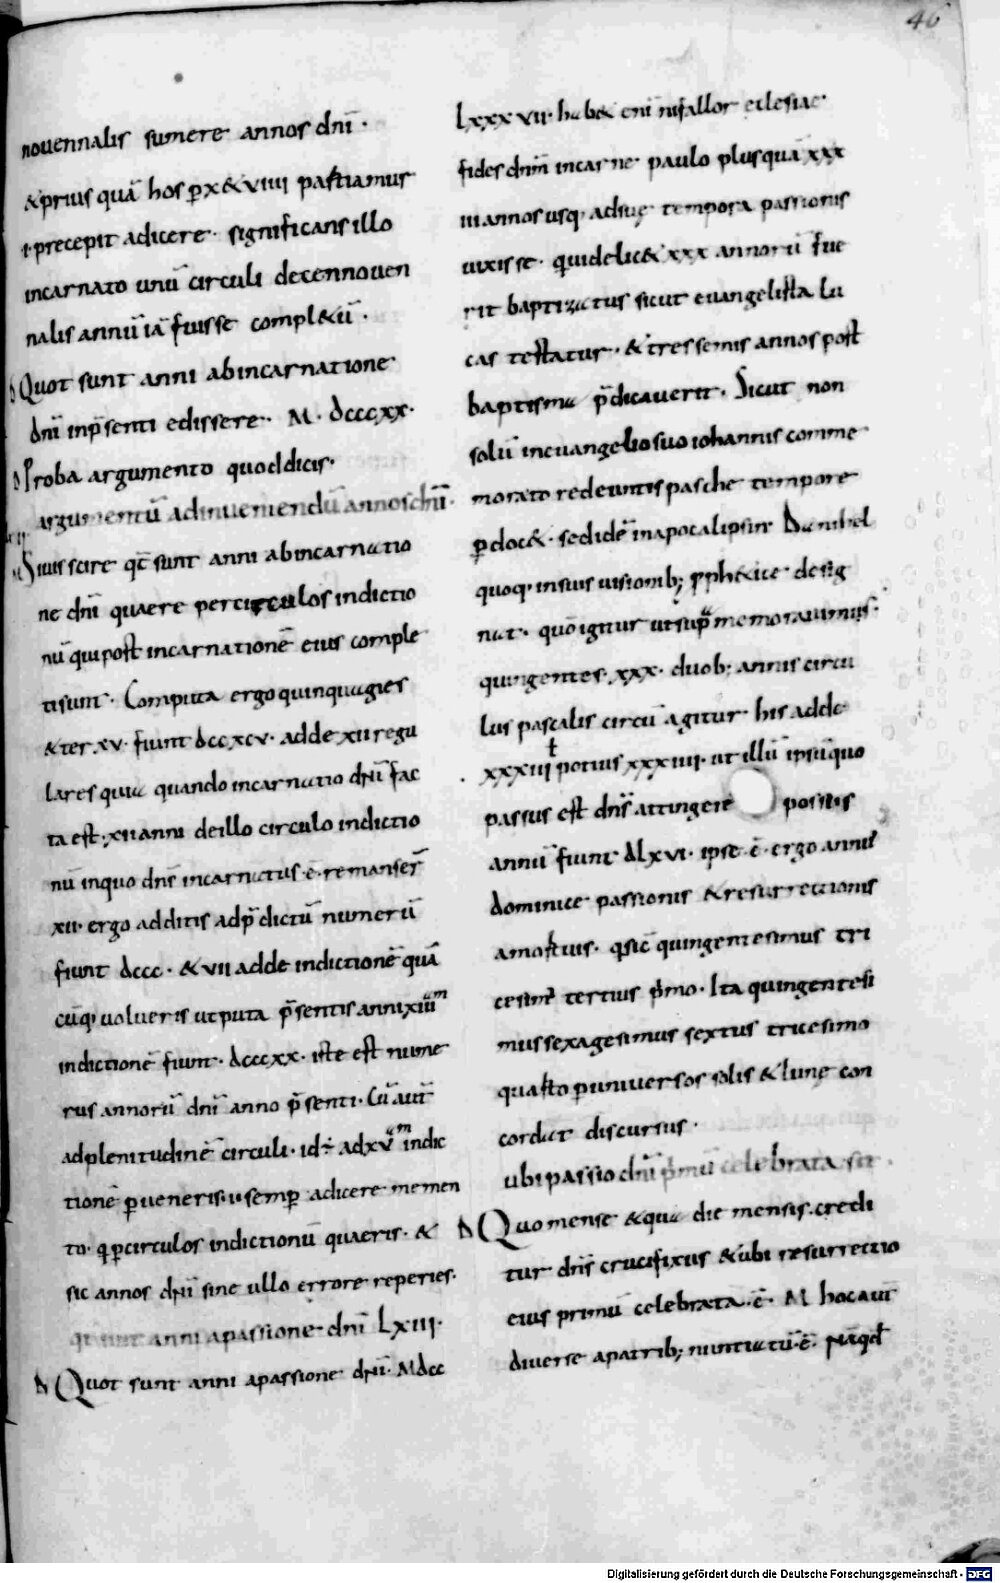 46
nouennalis sumere annos dnī ·
& prius quā hos p x & viiii pastiamur
· i · precepit adicere · significans illo
incarnato unū circuli decennouen
nalis annū iā fuisse compl&ū ·
D Quot sunt anni ab incarnatione
dnī in p̄senti edissere · M · dcccxx ·
D Proba argumento quod dicis ·
argumentū ad inueniendū annos dnī ·
M Si uis scire qt̄ sunt anni ab incarnatio
ne dnī quaere per circulos indictio
nū qui post incarnationē eius comple
ti sunt · Computa ergo quinquagies
& ter xv · fiunt dccxcv · adde xii regu
lares quia quando incarnatio dnī fac
ta est · xii anni de illo circulo indictio
nū in quo dn̄s incarnatus · ē · remanser̄
xii · ergo additis ad p̄dictū numerū
fiunt dccc · & vii adde indictionē quā
cūq; uolueris ut puta p̄sentis anni xiiiam
indictionē fiunt · dcccxx · iste est nume
rus annorū dnī anno p̄senti · Cū aut̄
ad plenitudinē circuli · id ÷ ad xvam indic
tionē p ueneris · u semp adicere memen
to · q p circulos indictionū quaeris · &
sic annos dnī sine ullo errore reperies ·
qt sunt anni a passione dnī Lxiii ·
D Quot sunt anni a passione dnī · M dcc
Lxxxvii · hab& eni nifallor eclesiae ·
fides dnm̄ in carne paulo plus quā xxx
iii annos usq; ad suę tempora passionis
uixisse · quidelic& xxx annorū fue
rit baptizatus sicut euangelista lu
cas testatur · & tres semis annos post
baptisma p̄dicauerit · Sicut non
solū in euangelio suo iohannis comme
morato redeuntis pasche tempore
p doc& · sed idē in apocalipsin Danihel
quoq; in suis uisionib; pph&ice desig
nat · quō igitur ut sup̄ memorauimus ·
quingentes · xxx · duob; annis circu
lus pascalis circū agitur his adde
xxxiii t potius xxxiiii · ut illū ipsū quo
passus est dn̄s attingere possitis
annū fiunt dlxvi · ipse · ē · ergo annus
dominice passionis & resurrectionis
a mortuis · q sic̄ quingentesimus tri
cesim; tertius p̄mo · Ita quingentesi
mus sexagesimus sextus tricesimo
quarto p uniuersos solis & lunę con
cordat discursus ·
ubi passio dnī p̄mū celebrata sit ·
D Quo mense & qua die mensis credi
tur dn̄s crucifixus & ubi resurrectio
eius primū celebrata · ē · M hoc aut̄
diuerse a patrib; nuntiatū · ē · Nā qd̄
Digitalisierung gefördert durch die Deutsche Forschungsgemeinschaft - DFG